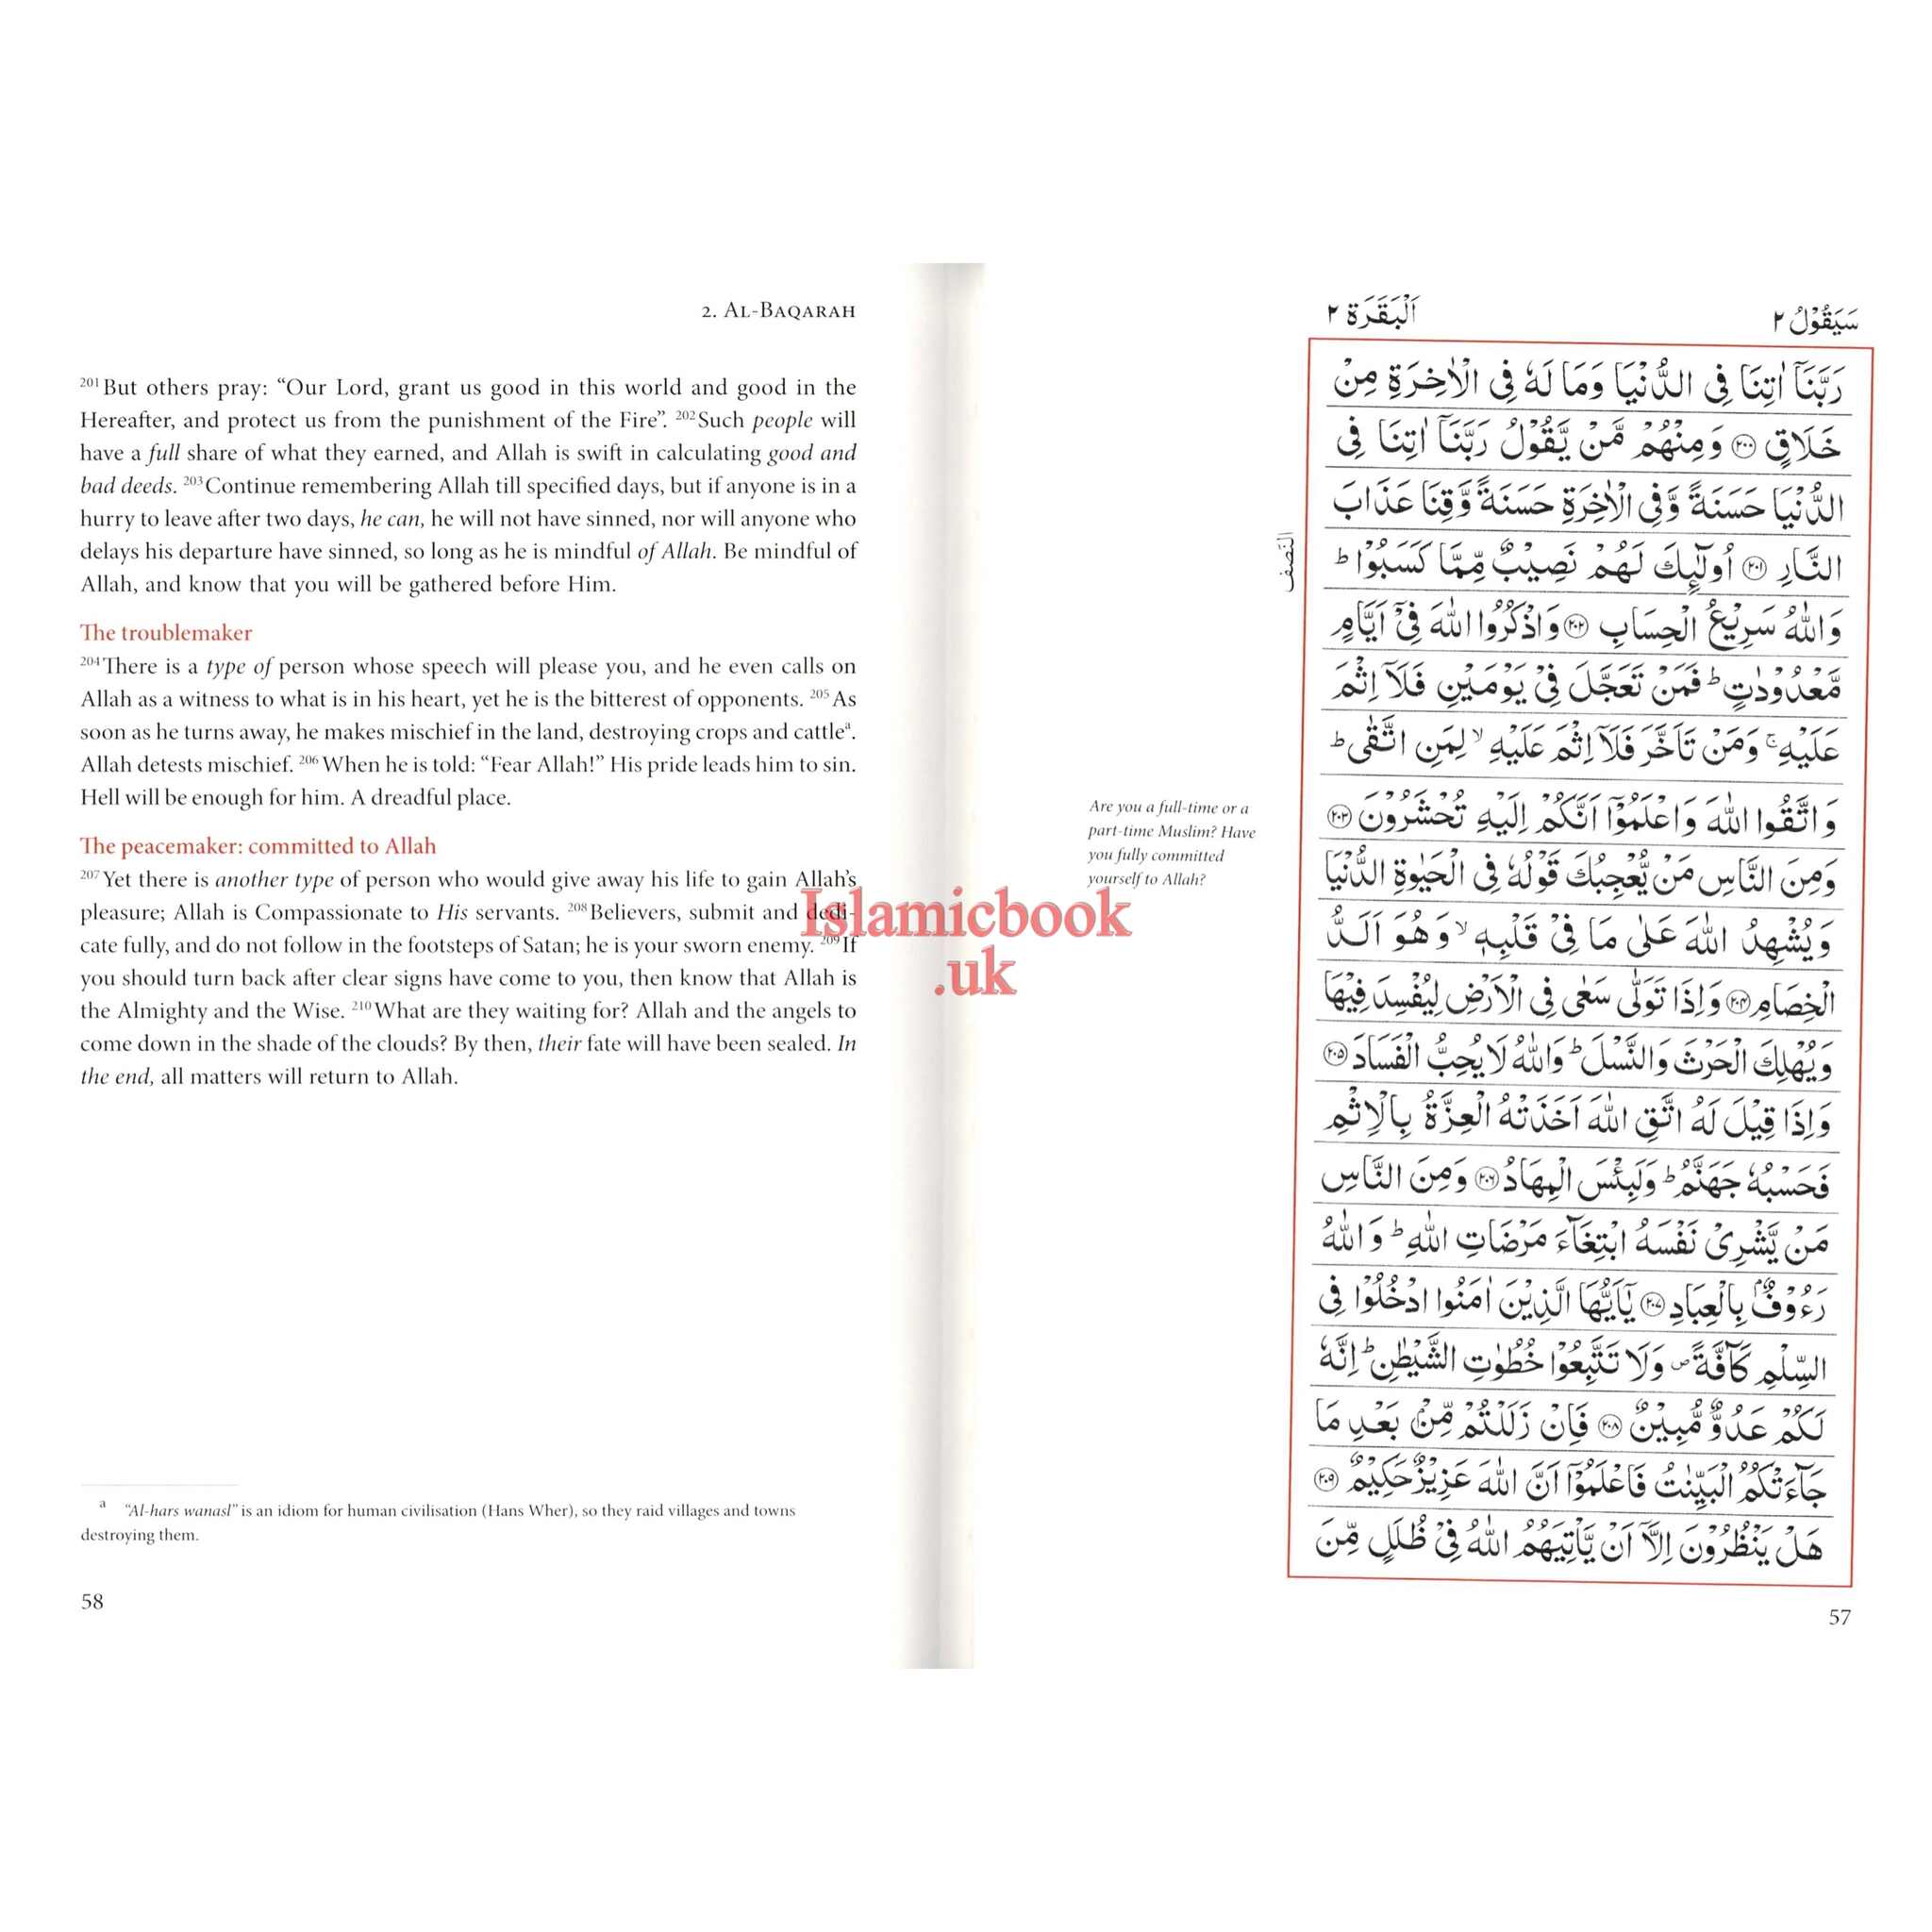 2. Al-Baqarah
²⁰¹But others pray: “Our Lord, grant us good in this world and good in the
Hereafter, and protect us from the punishment of the Fire”. ²⁰²Such people will
have a full share of what they earned, and Allah is swift in calculating good and
bad deeds. ²⁰³Continue remembering Allah till specified days, but if anyone is in a
hurry to leave after two days, he can, he will not have sinned, nor will anyone who
delays his departure have sinned, so long as he is mindful of Allah. Be mindful of
Allah, and know that you will be gathered before Him.
The troublemaker
²⁰⁴There is a type of person whose speech will please you, and he even calls on
Allah as a witness to what is in his heart, yet he is the bitterest of opponents. ²⁰⁵As
soon as he turns away, he makes mischief in the land, destroying crops and cattleᵃ.
Allah detests mischief. ²⁰⁶When he is told: “Fear Allah!” His pride leads him to sin.
Hell will be enough for him. A dreadful place.
The peacemaker: committed to Allah
²⁰⁷Yet there is another type of person who would give away his life to gain Allah’s
pleasure; Allah is Compassionate to His servants. ²⁰⁸Believers, submit and dedi-
cate fully, and do not follow in the footsteps of Satan; he is your sworn enemy. ²⁰⁹If
you should turn back after clear signs have come to you, then know that Allah is
the Almighty and the Wise. ²¹⁰What are they waiting for? Allah and the angels to
come down in the shade of the clouds? By then, their fate will have been sealed. In
the end, all matters will return to Allah.
a “Al-hars wanasl” is an idiom for human civilisation (Hans Wher), so they raid villages and towns
destroying them.
58
Islamicbook
.uk
سَيَقُوْلُ ٢
اَلْبَقَرَة ٢
رَبَّنَآ اٰتِنَا فِي الدُّنْيَا وَمَا لَهٗ فِي الْاٰخِرَةِ مِنْ
خَلَاقٍ ۝٢٠٠ وَمِنْهُمْ مَّنْ يَّقُوْلُ رَبَّنَآ اٰتِنَا فِي
الدُّنْيَا حَسَنَةً وَّفِي الْاٰخِرَةِ حَسَنَةً وَّقِنَا عَذَابَ
النَّارِ ۝٢٠١ اُولٰٓئِكَ لَهُمْ نَصِيْبٌ مِّمَّا كَسَبُوْا ؕ
وَاللّٰهُ سَرِيْعُ الْحِسَابِ ۝٢٠٢ وَاذْكُرُوا اللّٰهَ فِيْٓ اَيَّامٍ
مَّعْدُوْدٰتٍ ؕ فَمَنْ تَعَجَّلَ فِيْ يَوْمَيْنِ فَلَآ اِثْمَ
عَلَيْهِ ۚ وَمَنْ تَاَخَّرَ فَلَآ اِثْمَ عَلَيْهِ ۙ لِمَنِ اتَّقٰى ؕ
وَاتَّقُوا اللّٰهَ وَاعْلَمُوْٓا اَنَّكُمْ اِلَيْهِ تُحْشَرُوْنَ ۝٢٠٣
وَمِنَ النَّاسِ مَنْ يُّعْجِبُكَ قَوْلُهٗ فِي الْحَيٰوةِ الدُّنْيَا
وَيُشْهِدُ اللّٰهَ عَلٰى مَا فِيْ قَلْبِهٖ ۙ وَهُوَ اَلَدُّ
الْخِصَامِ ۝٢٠٤ وَاِذَا تَوَلّٰى سَعٰى فِي الْاَرْضِ لِيُفْسِدَ فِيْهَا
وَيُهْلِكَ الْحَرْثَ وَالنَّسْلَ ؕ وَاللّٰهُ لَا يُحِبُّ الْفَسَادَ ۝٢٠٥
وَاِذَا قِيْلَ لَهُ اتَّقِ اللّٰهَ اَخَذَتْهُ الْعِزَّةُ بِالْاِثْمِ
فَحَسْبُهٗ جَهَنَّمُ ؕ وَلَبِئْسَ الْمِهَادُ ۝٢٠٦ وَمِنَ النَّاسِ
مَنْ يَّشْرِيْ نَفْسَهُ ابْتِغَآءَ مَرْضَاتِ اللّٰهِ ؕ وَاللّٰهُ
رَءُوْفٌۢ بِالْعِبَادِ ۝٢٠٧ يٰٓاَيُّهَا الَّذِيْنَ اٰمَنُوا ادْخُلُوْا فِي
السِّلْمِ كَآفَّةً ۪ وَلَا تَتَّبِعُوْا خُطُوٰتِ الشَّيْطٰنِ ؕ اِنَّهٗ
لَكُمْ عَدُوٌّ مُّبِيْنٌ ۝٢٠٨ فَاِنْ زَلَلْتُمْ مِّنْۢ بَعْدِ مَا
جَآءَتْكُمُ الْبَيِّنٰتُ فَاعْلَمُوْٓا اَنَّ اللّٰهَ عَزِيْزٌ حَكِيْمٌ ۝٢٠٩
هَلْ يَنْظُرُوْنَ اِلَّآ اَنْ يَّاْتِيَهُمُ اللّٰهُ فِيْ ظُلَلٍ مِّنَ
النّصف
Are you a full-time or a
part-time Muslim? Have
you fully committed
yourself to Allah?
57